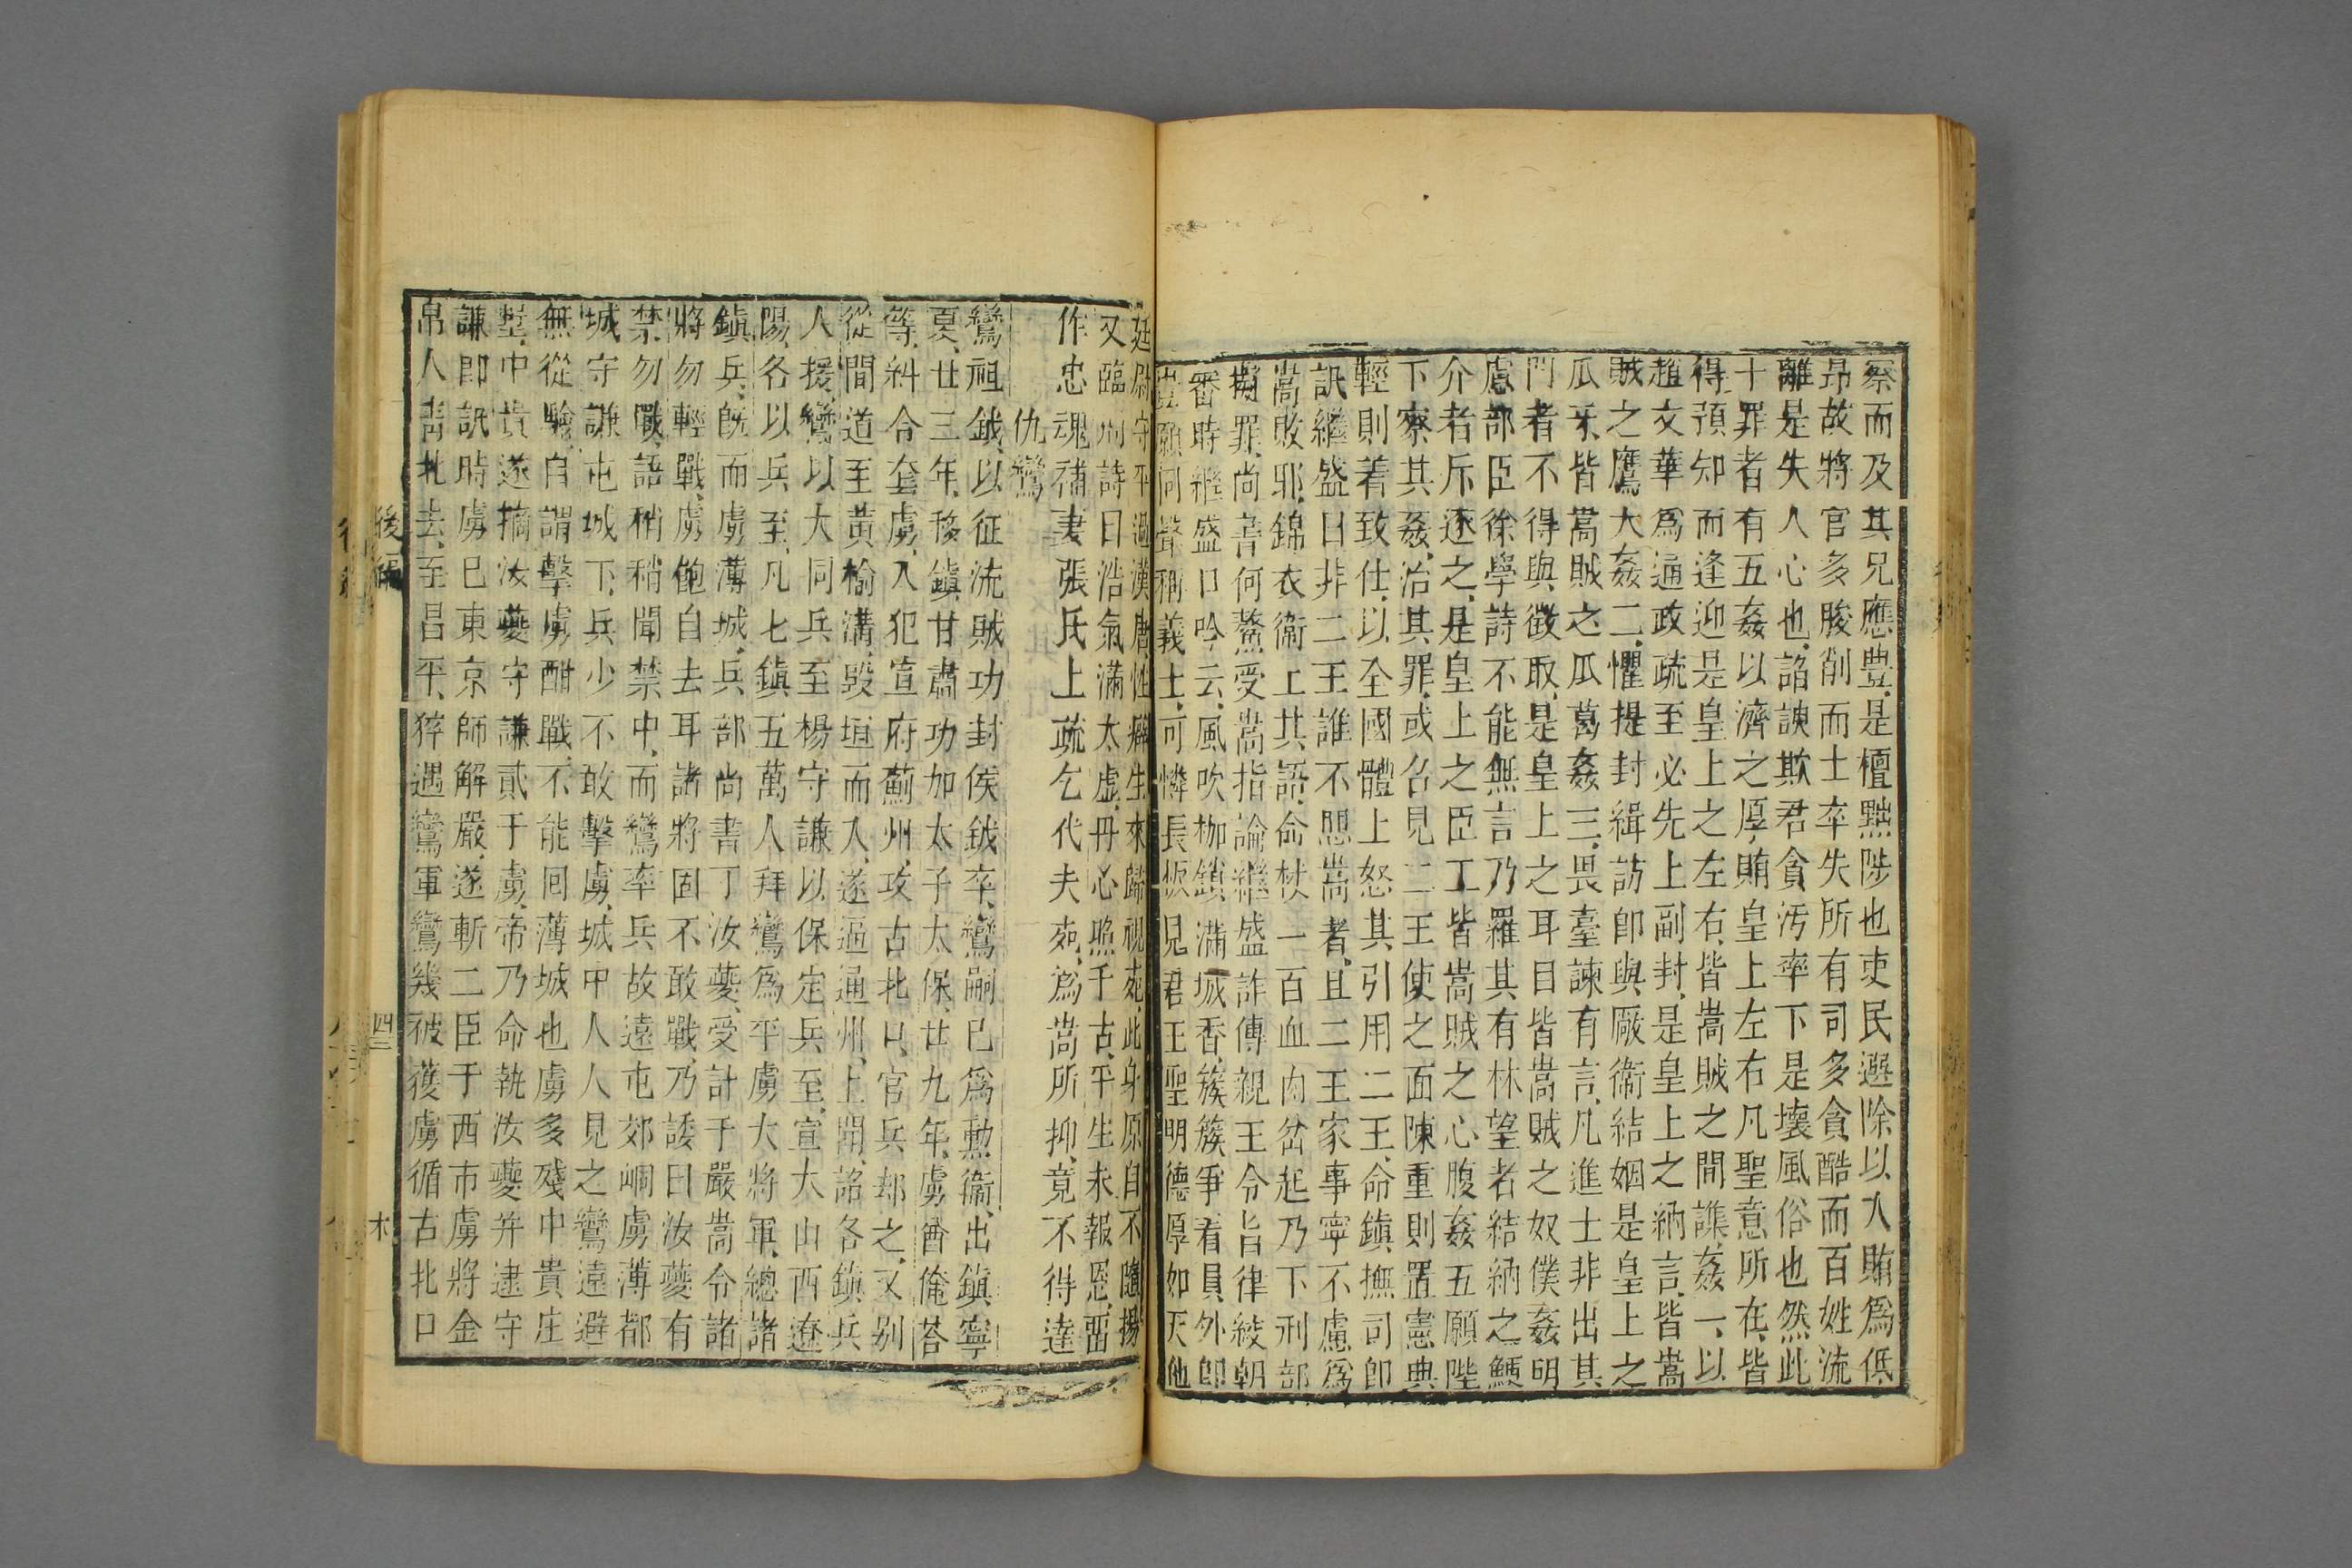 察而及其兄應豊是檀黜陟也吏民選除以入賄爲低
昻故將官多朘削而士卒失所有司多貪酷而百姓流
離是失人心也諂諛欺君貪汚率下是壞風俗也然此
十罪者有五姦以濟之厚賄皇上左右凡聖意所在皆
得預知而逢迎是皇上之左右皆嵩賊之間諜姦一以
趙文華爲通政疏至必先上副封是皇上之納言皆嵩
賊之鷹犬姦二懼提封緝訪卽與厰衞結姻是皇上之
瓜牙皆嵩賊之瓜葛姦三畏臺諫有言凡進士非出其
門者不得與徵取是皇上之耳目皆嵩賊之奴僕姦明
慮部臣徐學詩不能無言乃羅其有林望者結納之鯁
介者斥逐之是皇上之臣工皆嵩賊之心腹姦五願陛
下察其姦治其罪或召見二王使之面陳重則置憲典
輕則着致仕以全國體上怒其引用二王命鎮撫司卽
訊繼盛曰非二王誰不愳嵩者且二王家事寧不慮爲
嵩敗耶錦衣衞上其語命杖一百血肉岔起乃下刑部
擬罪尚書何鰲受嵩指論繼盛詐傳親王令旨律絞朝
審時繼盛口吟云風吹枷鎖滿城香簇簇爭看員外郎
豈願同聲稱義士可憐長板見君王聖明德厚如天地
廷尉守平過漢唐性癖生來歸視死此身原自不隨揚
又臨刑詩曰浩氣滿太虛丹心照千古平生未報恩畱
作忠魂補妻張氏上疏乞代夫死爲嵩所抑竟不得達
仇鸞
鸞祖鉞以征流賊功封侯鉞卒鸞嗣已爲勳衞出鎮寧
夏廿三年移鎮甘肅功加太子太保廿九年虜酋俺荅
等糾令套虜入犯宣府薊州攻古北口官兵却之又别
從間道至黃榆溝毀垣而入遂逼通州上聞詔各鎮兵
入援鸞以大同兵至楊守謙以保定兵至宣大山西遼
陽各以兵至凡七鎮五萬人拜鸞爲平虜大將軍總諸
鎮兵旣而虜薄城兵部尚書丁汝夔受計于嚴嵩令諸
將勿輕戰虜飽自去耳諸將固不敢戰乃諉曰汝夔有
禁勿戰語稍稍聞禁中而鸞率兵故遠屯郊峒虜薄都
城守謙屯城下兵少不敢擊虜城中人人見之鸞遠避
無從驗自謂擊虜酣戰不能囘薄城也虜多殘中貴庄
墅中貴遂摘汝夔守謙貳于虜帝乃命執汝夔并逮守
謙卽訊時虜已東京師解嚴遂斬二臣于西市虜將金
帛人靑北去至昌平猝遇鸞軍鸞幾被獲虜循古北口
後編
四三
木